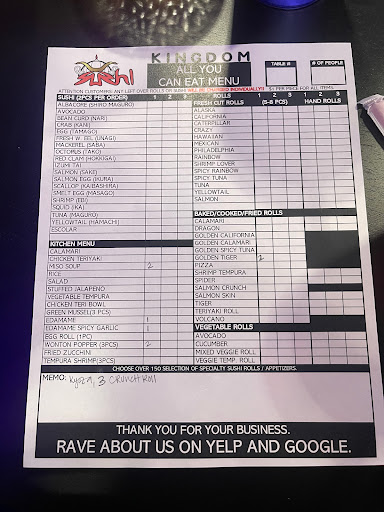 KINGDOM
SUSHI
ALL YOU
CAN EAT MENU
TABLE #
# OF PEOPLE
ATTENTION CUSTOMERS! ANY LEFT OVER ROLLS OR SUSHI WILL BE CHARGED INDIVIDUALLY!! $1 PER PIECE FOR ALL ITEMS.
SUSHI (2PCS PER ORDER) 1 2 3
ALBACORE (SHIRO MAGURO)
AVOCADO
BEAN CURD (INARI)
CRAB (KANI)
EGG (TAMAGO)
FRESH W. EEL (UNAGI)
MACKEREL (SABA)
OCTOPUS (TAKO)
RED CLAM (HOKKIGAI)
IZUMI TAI
SALMON (SAKE)
SALMON EGG (IKURA)
SCALLOP (KAIBASHIRA)
SMELT EGG (MASAGO)
SHRIMP (EBI)
SQUID (IKA)
TUNA (MAGURO)
YELLOWTAIL (HAMACHI)
ESCOLAR
KITCHEN MENU
CALAMARI
CHICKEN TERIYAKI
MISO SOUP 2
RICE
SALAD
STUFFED JALAPENO
VEGETABLE TEMPURA
CHICKEN TERI BOWL
GREEN MUSSEL(3 PCS)
EDAMAME 1
EDAMAME SPICY GARLIC 1
EGG ROLL (1PC)
WONTON POPPER (3PCS) 2
FRIED ZUCCHINI
TEMPURA SHRIMP(3PCS)
ROLLS 1 2 3 1 2 3
FRESH CUT ROLLS (5-8 PCS) HAND ROLLS
ALASKA
CALIFORNIA
CATERPILLAR
CRAZY
HAWAIIAN
MEXICAN
PHILADELPHIA
RAINBOW
SHRIMP LOVER
SPICY RAINBOW
SPICY TUNA
TUNA
YELLOWTAIL
SALMON
BAKED/COOKED/FRIED ROLLS
CALAMARI
DRAGON
GOLDEN CALIFORNIA
GOLDEN CALAMARI
GOLDEN SPICY TUNA
GOLDEN TIGER 2
PIZZA
SHRIMP TEMPURA
SPIDER
SALMON CRUNCH
SALMON SKIN
TIGER
TERIYAKI ROLL
VOLCANO
VEGETABLE ROLLS
AVOCADO
CUCUMBER
MIXED VEGGIE ROLL
VEGGIE TEMP. ROLL
CHOOSE OVER 150 SELECTION OF SPECIALTY SUSHI ROLLS / APPETIZERS.
MEMO: 3 CRUNCH ROLL
THANK YOU FOR YOUR BUSINESS.
RAVE ABOUT US ON YELP AND GOOGLE.